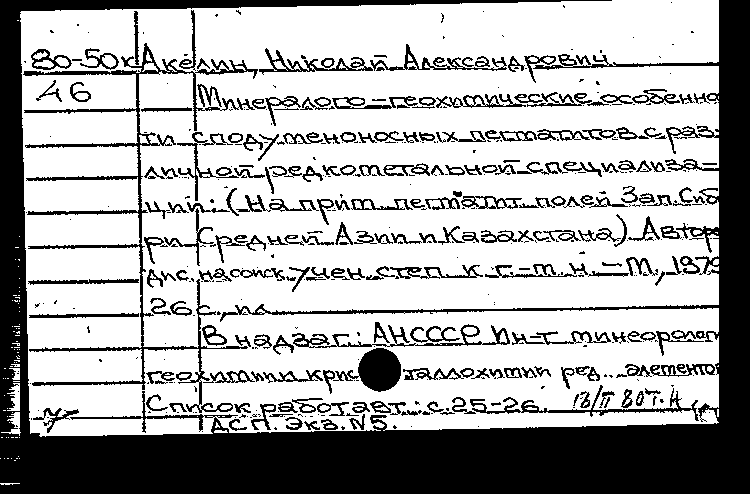 80-50к Акелин, Николай Александрович.
46 Минералого-геохимические особенно
ти сподуменоносных пегматитов с раз-
личной редкометальной специализа-
ций: (На прим. пегматит. полей Зап. Сиб
ри Средней Азии и Казахстана) Автор
дис. на соиск. учен. степ. к. г.-м. н. - М., 1979
26 с., ил
В надзаг.: АН СССР Ин-т минеоролег
геохимии крис таллохимии ред. элементов
Список работ авт.: с. 25-26. 13/II 80 г. А
ДСП. Экз. №5.